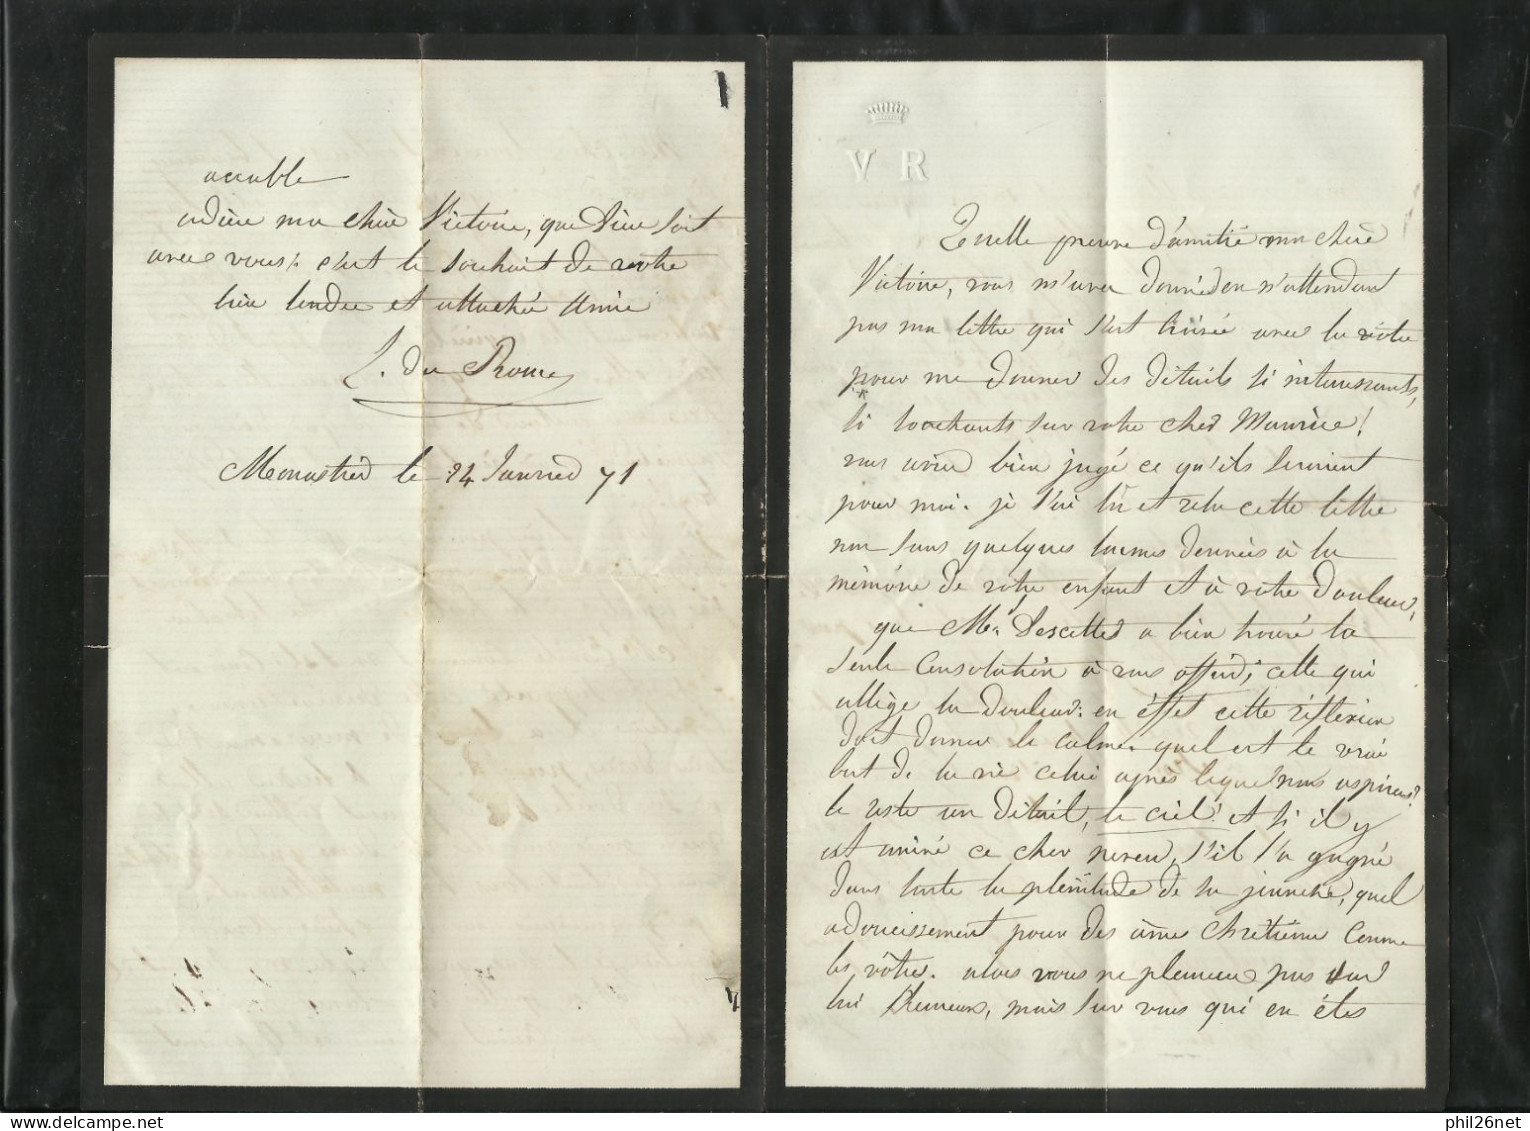 accable
adieu ma chère Victoire, que Dieu soit
avec vous, c'est le souhait de votre
bien tendre et attachée Amie
L. du
Monastier le 24 Janvier 71
V R
Quelle preuve d'amitié ma chère
Victoire, vous m'avez donnée en n'attendant
pas ma lettre qui s'est croisée avec la vôtre
pour me donner des détails si intéressants,
si touchants sur votre cher Maurice!
vous aviez bien jugé ce qu'ils seraient
pour moi. je l'ai lu et relu cette lettre
non sans quelques larmes données à la
mémoire de votre enfant et à votre douleur,
que Mr a bien trouvé la
seule consolation à vous offrir, celle qui
allège la douleur. en effet cette réflexion
doit donner le calme. quel est le vrai
but de la vie celui après lequel nous aspirons?
le reste un détail, le ciel! et si il y
est arrivé ce cher neveu, s'il l'a gagné
dans toute la plénitude de sa jeunesse, quel
adoucissement pour des âmes chrétiennes comme
les vôtres. alors vous ne pleurez pas sur
lui pleurons, mais sur vous qui en êtes
phil26net